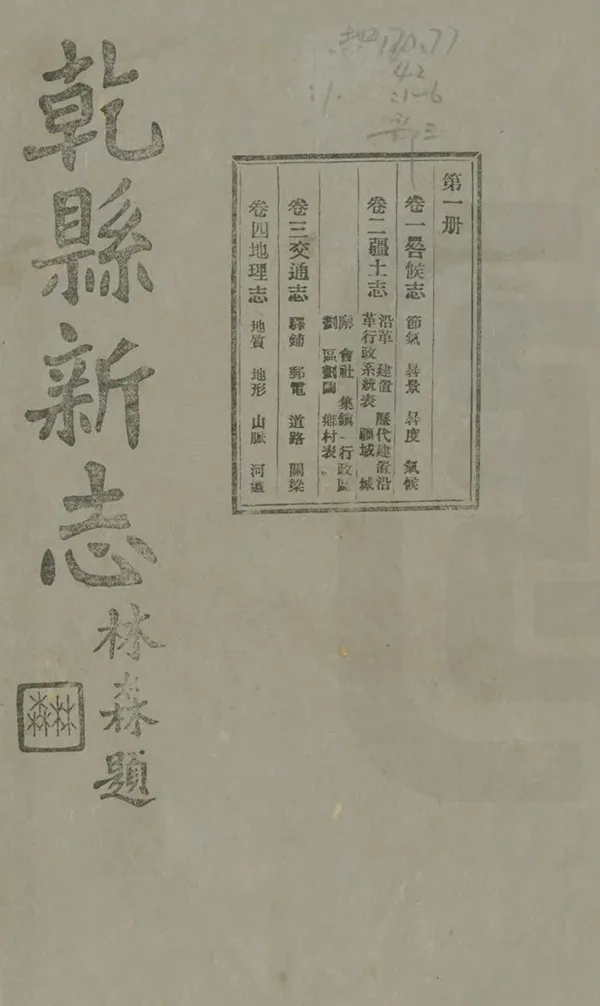 乾縣新志
林森題
林森
第一册
卷一晷候志 節氣 晷景 晷度 氣候
卷二疆土志 沿革 建置 歷代建置沿
革行政系統表 疆域 城
廓 會社 集鎮 行政區
劃 區劃圖 鄉村表
卷三交通志 驛鋪 郵電 道路 關梁
卷四地理志 地質 地形 山脈 河
170.77
42
:1-6